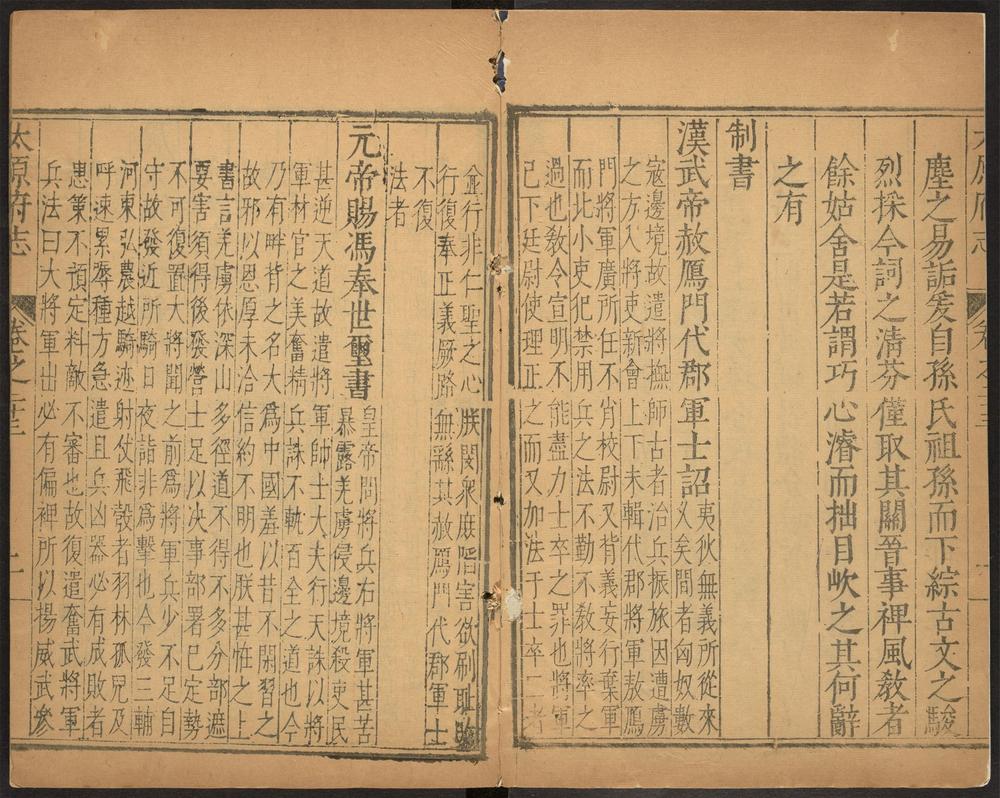 塵之易詬爰自孫氏祖孫而下綜古文之駿
烈採今詞之清芬僅取其關晉事裨風教者
餘姑舍是若謂巧心濬而拙目㰞之其何辭
之有
制書
漢武帝赦鴈門代郡軍士詔
夷狄無義所從來
乂矣間者匈奴數
寇邊境故遣將撫師古者治兵振旅因遭虜
之方入將吏新會上下未輯代郡將軍敖鴈
門將軍廣所任不肖校尉又背義妄行棄軍
而北小吏犯禁用兵之法不勤不教將率之
過也教令宣明不能盡力士卒之罪也將軍
已下廷尉使理正之而又加法于士卒二者
並行非仁聖之心朕閔衆庶陷害欲刷恥
行復奉正義厥路無繇其赦鴈門代郡軍士
不復
法者
元帝賜馮奉世璽書
皇帝問將兵右將軍甚苦
暴露羌虜侵邊境殺吏民
甚逆天道故遣將軍帥士大夫行天誅以將
軍材官之美奮精兵誅不軌百全之道也今
乃有畔背之名大爲中國羞以昔不閑習之
故邪以恩厚未洽信約不明也朕甚恠之上
書言羌虜依深山多徑道不得不多分部遮
要害須得後發營士足以决事部署已定勢
不可復置大將聞之前爲將軍兵少不足自
守故發近所騎日夜詣非爲擊也今發三輔
河東弘農越騎迹射佽飛彀者羽林孤兒及
呼速累嗕種方急遣且兵凶器必有成敗者
患策不預定料敵不審也故復遣奮武將軍
兵法曰大將軍出必有偏裨所以揚威武參
太原府志 卷之二十三 二